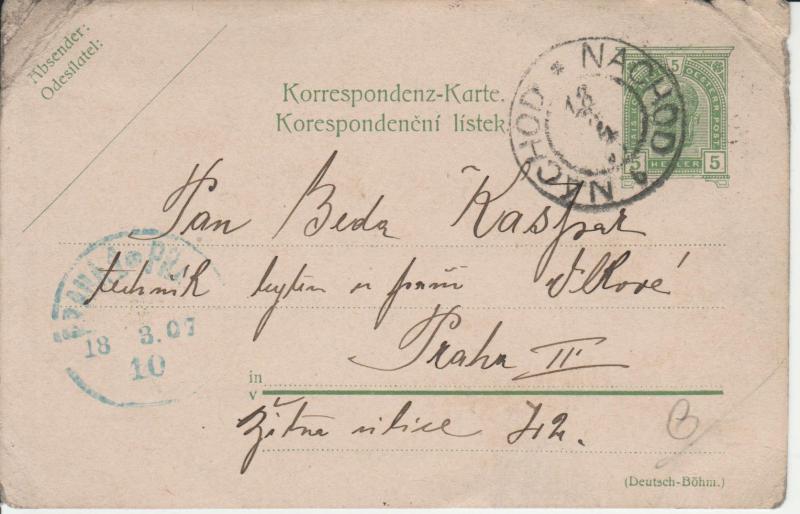 Absender:
Odesílatel:
Korrespondenz-Karte.
Korespondenční lístek
* NACHOD A NACHOD
5 OESTERR. POST
5 HELLER 5
Pan Beda Kašpar
technik bytem u paní
Praha II
in
v
Žitná ulice
18 3.07
10
(Deutsch-Böhm.)